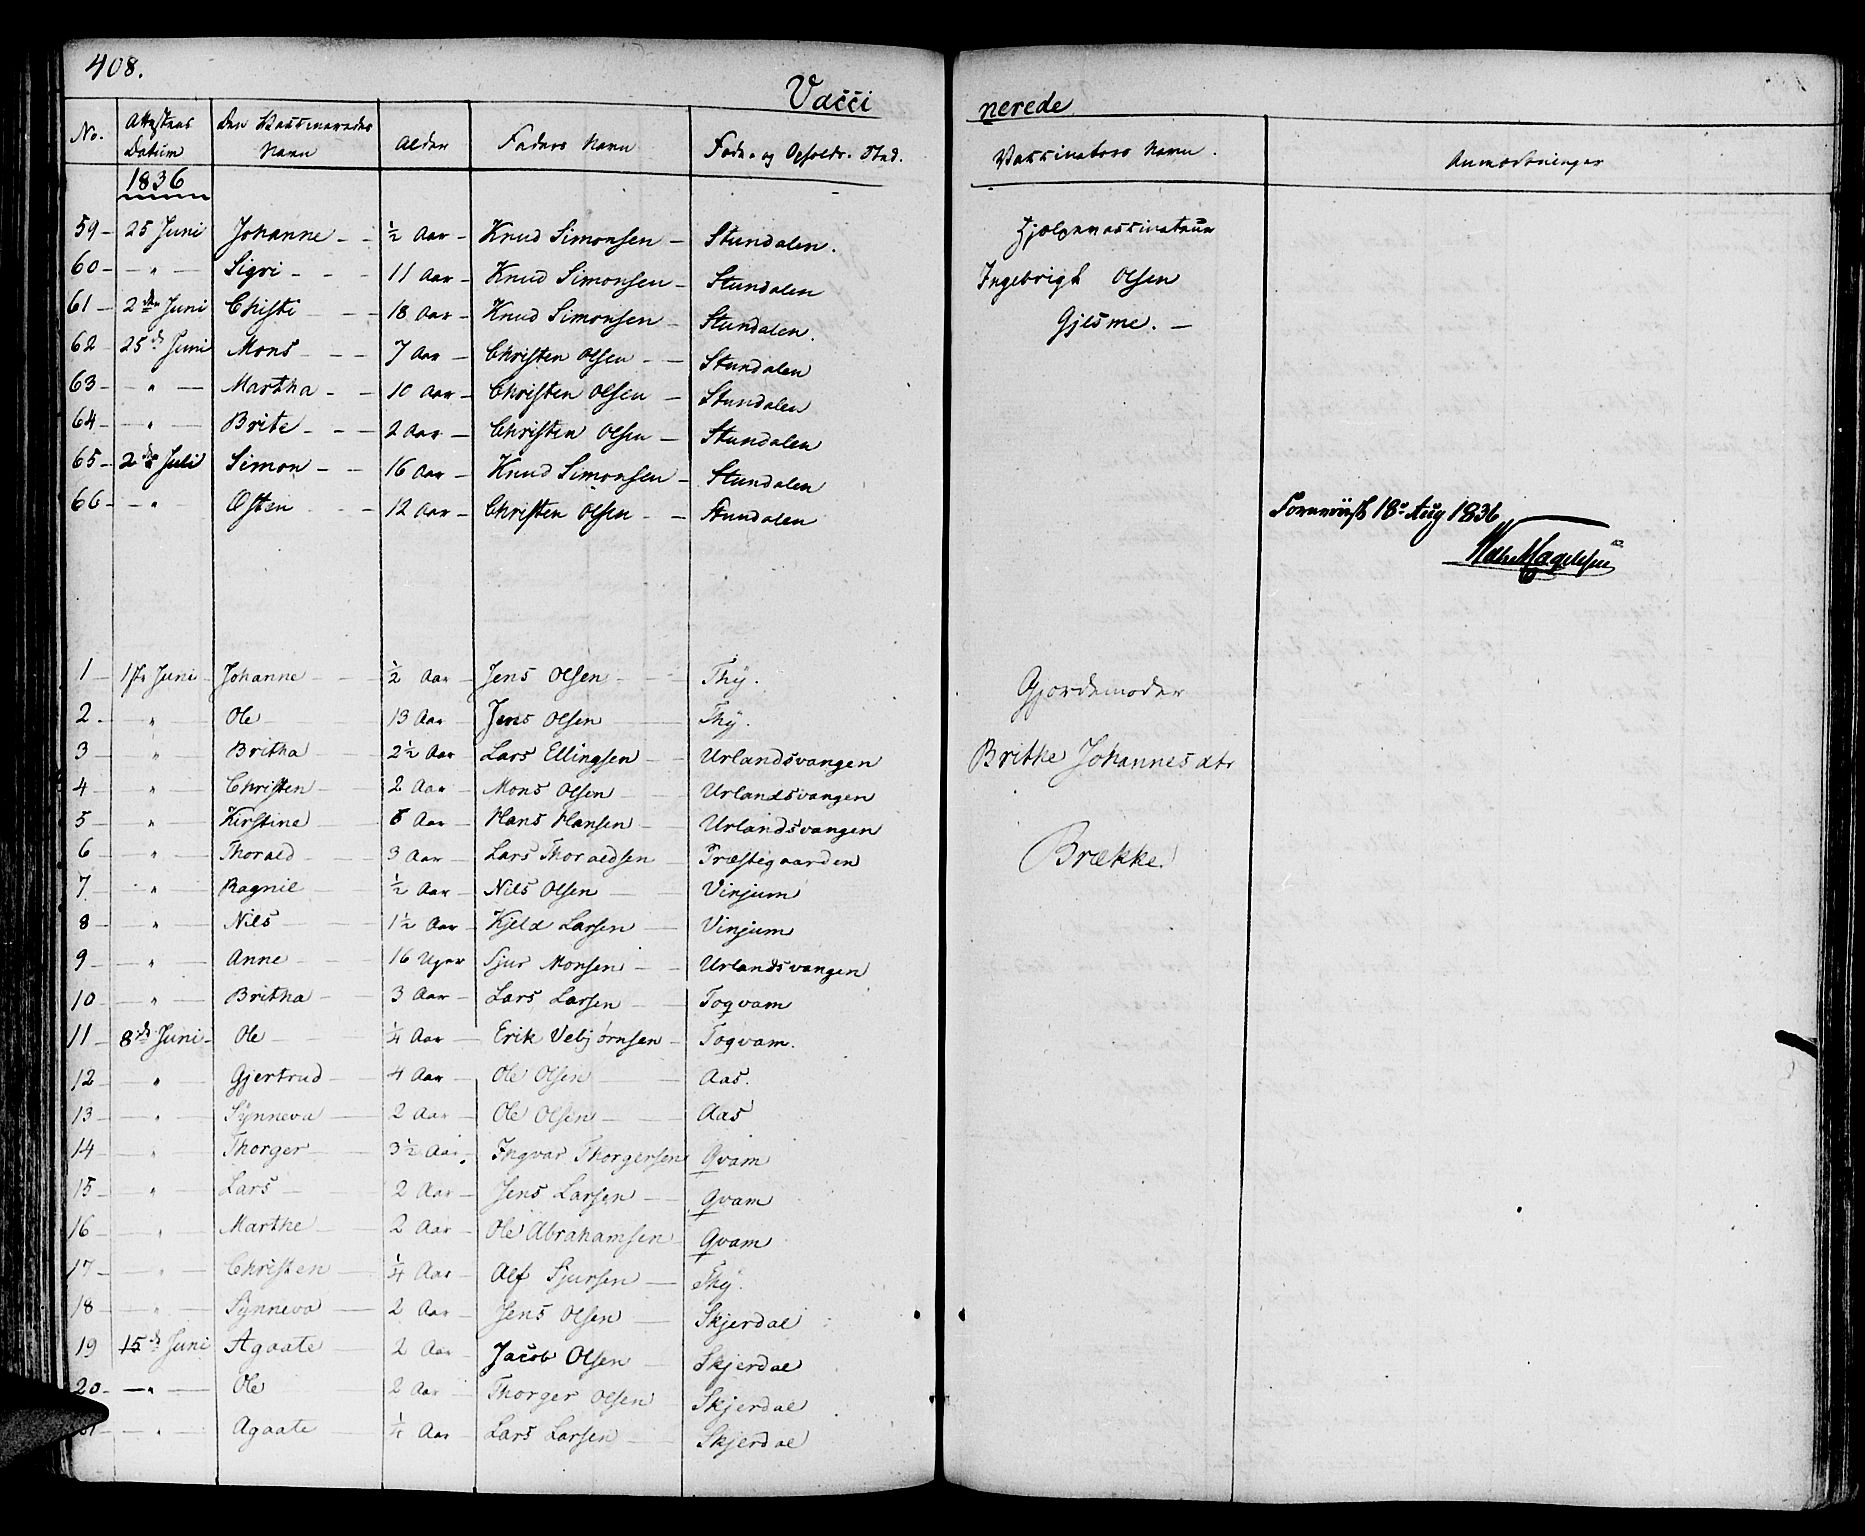 408.
Vacci nerede
No. Attestens Datum Den Vaccineredes Navn Alder Faders Navn Føde- og Opholds-Sted. Vaccinators Navn. Anmærkninger
1836
59 - 25 Juni Johanne - - ½ Aar - Knud Simonsen - Stundalen. Hjelpevaccinateur
60 - - " - Sigri - - - 11 Aar - Knud Simonsen - Stundalen Ingebrigt Olsen
61 - 2den Juni Christi - - - 18 Aar - Knud Simonsen - Stundalen. Gjelsme. -
62 - 25de Juni Mons - - - 7 Aar - Christen Olsen - - Stundalen
63 - - " - Martha - - 10 Aar - Christen Olsen - Stundalen
64 - - " - Brite - - - 2 Aar - Christen Olsen - Stundalen
65 - 2den Juli Simon - - 16 Aar - Knud Simonsen - Stundalen
66 - - " - Østen - - - 12 Aar - Christen Olsen - - Stundalen
Forevist 18de Aug 1836
1 - 1ste Juni - Johanne - - ½ Aar - Jens Olsen - - Thÿ. Gjordemoder
2 - " - Ole - 13 Aar - Jens Olsen - Thÿ.
3 - - " - Britha - - 2½ Aar Lars Ellingsen - - Urlandsvangen Brithe Johannesdtr
4 - - " - Christen - 2 Aar - Mons Olsen - Urlandsvangen
5 - - " - Kirstine - 6 Aar - Hans Hansen - Urlandsvangen
6 - " - Thorald - - 3 Aar - Lars Thoraldsen - Præstegaarden Brække.
7 - " - Ragnil - - ½ Aar - Nils Olsen - Vinjum
8 - - " - Nils - 1½ Aar - Kjeld Larsen - Vinjum
9 - - " - Anne - - 16 Uger Sjur Monsen - - Urlandsvangen
10 - - " - Britha - - 3 Aar - Lars Larsen - Togvam
11 - 8de Juni - Ole - - ¼ Aar - Erik Vebjørnsen - Togvam.
12 - - " - Gjertrud - 4 Aar - Ole Olsen - Aas.
13 - - " - Sÿnneva - 2 Aar - Ole Olsen - Aas
14 - - " - Thorger - 3½ Aar. Ingvar Thorgersen Qvam
15 - - " - Lars - 2 Aar - Jens Larsen - Qvam
16 - - " - Marthe - 2 Aar - Ole Abrahamsen - Qvam
17 - - " - Christen - ¼ Aar - Alf Sjursen - Thÿ.
18 - - " - Sÿnneva - 2 Aar - Jens Olsen - Skjerdal
19 15de Juni Agaate - 2 Aar - Jacob Olsen - Skjerdal
20 - - " - Ole - 2 Aar - Thorger Olsen Skjerdal
- " - Agaate - ¼ Aar - Lars Larsen - Skjerdal